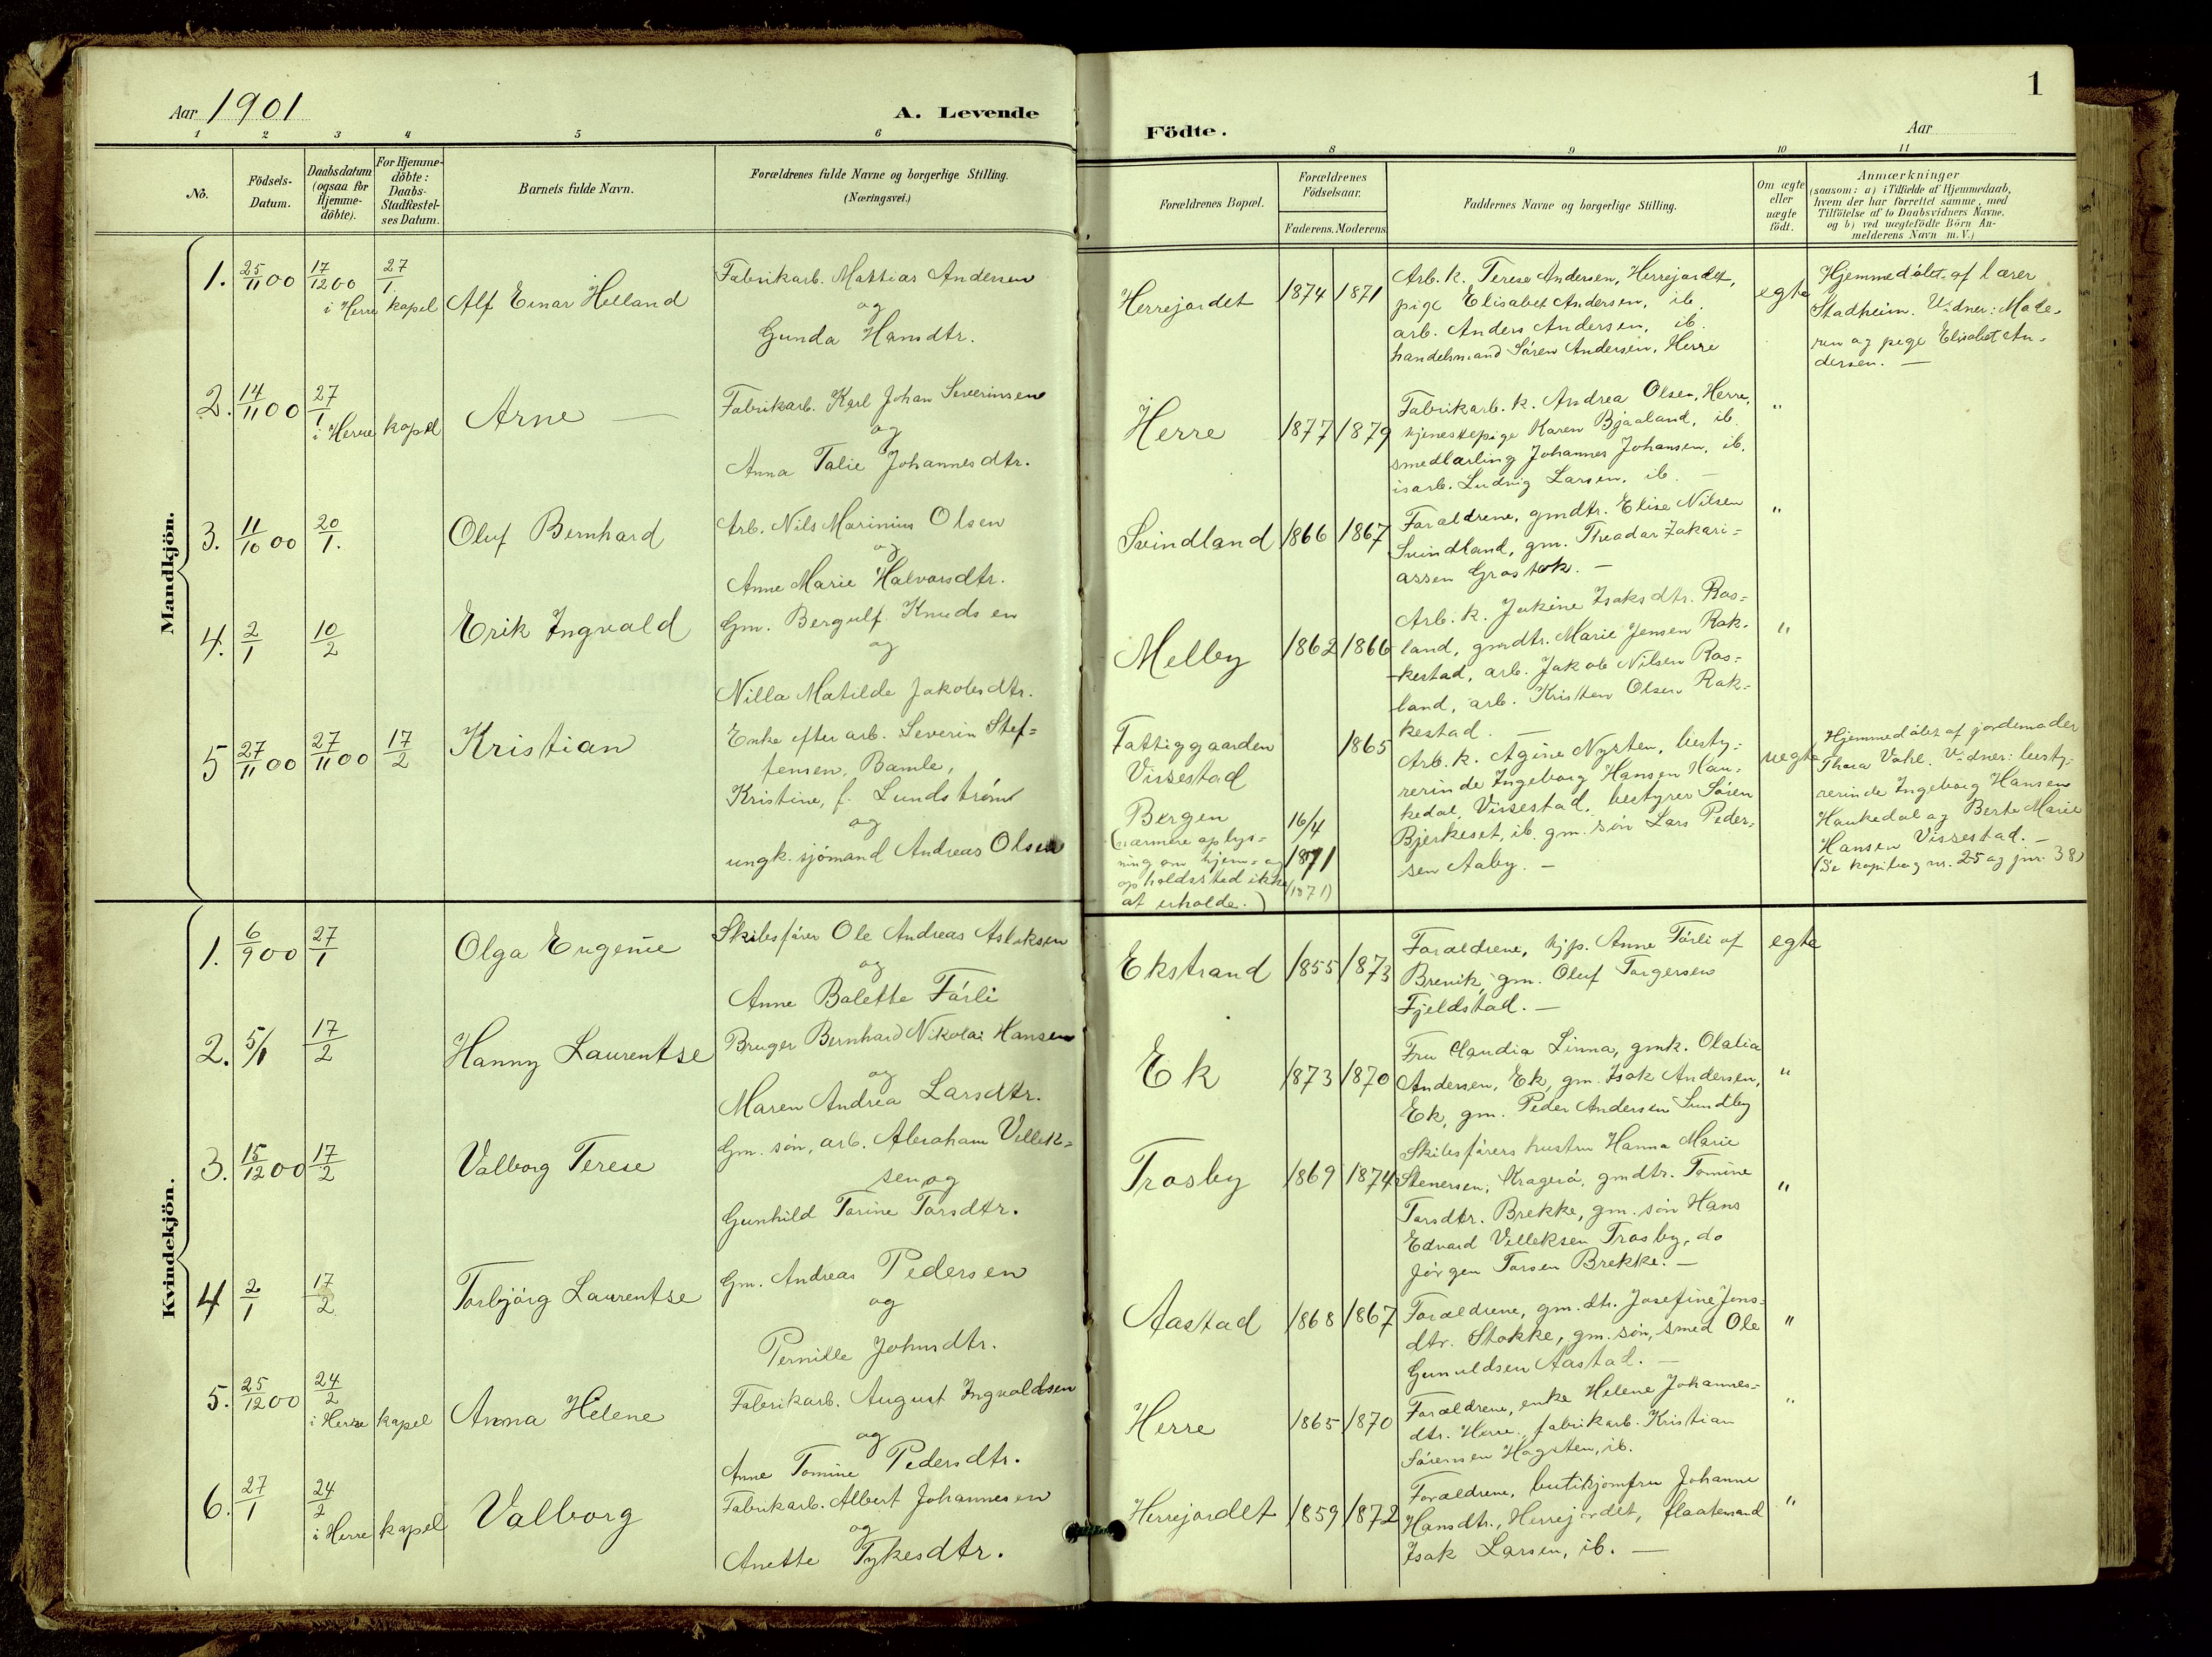 Aar 1901
A. Levende
1 2 3 4 5 6
No.
Födsels-
Datum.
Daabsdatum
(ogsaa for
Hjemme-
döbte).
For Hjemme-
döbte:
Daabs-
Stadfæstel-
ses Datum.
Barnets fulde Navn.
Forældrenes fulde Navne og borgerlige Stilling.
(Næringsvei.)
Mandkjön.
1. 25/11 00 17/12 00 27/1.
i Herre kapel
Alf Einar Helland
Fabrikarb. Mattias Andersen
og
Gunda Hansdtr.
2. 14/11 00 27/1
i Herre kapel
Arne —
Fabrikarb. Karl Johan Severinsen
og
Anna Talie Johannesdtr.
3. 11/10 00 20/1.
Oluf Bernhard
Arb. Nils Marinius Olsen
og
Anne Marie Halvorsdtr.
4. 2/1 10/2
Erik Ingvald
Gm. Bergulf Knudsen
og
Nilla Matilde Jakobsdtr.
5 27/11 00 27/11 00 17/2
Kristian
Enke efter arb. Severin Stef=
fensen, Bamle,
Kristine, f. Lundström
og
ungk. sjömand Andreas Olsen
Kvindekjön.
1. 6/9 00 27/1
Olga Eugenie
Skibsförer Ole Andreas Aslaksen
og
Anne Bolette Färli
2. 5/1 17/2
Hanny Laurentse
Bruger Bernhard Nikolai Hansen
og
Maren Andrea Larsdtr.
3. 15/12 00 17/2
Valborg Terese
Gm. søn, arb. Abraham Vellek=
sen og
Gunhild Torine Torsdtr.
4 2/1 17/2
Torbjörg Laurentse
Gm. Andreas Pedersen
og
Pernille Johnsdtr.
5. 25/12 00 24/2
i Herre kapel
Anna Helene
Fabrikarb. August Ingvaldsen
og
Anne Tomine Pedersdtr.
6. 27/1 24/2
i Herre kapel
Valborg
Fabrikarb. Albert Johannesen
og
Anette Tykesdtr.
1
Födte.
Aar
8 9 10 11
Forældrenes Bopæl.
Forældrenes
Födselsaar.
Faderens. Moderens.
Faddernes Navne og borgerlige Stilling.
Om ægte
eller
uægte
födt.
Anmærkninger
(saasom: a) i Tilfælde af Hjemmedaab,
hvem der har forrettet samme, med
Tilföielse af to Daabsvidners Navne,
og b) ved uægtefödte Börn An-
melderens Navn m. V.)
Herrejordet 1874 1871
Arb. k. Terese Andersen, Herrejordet,
pige Elisabet Andersen, ib.
arb. Anders Andersen, ib.
handelsmand Sören Andersen, Herre
egte
Hjemmedöbt af lærer
Stadheim. Vidner: Mode-
ren og pige Elisabet An-
dersen. —
Herre 1877 1879
Fabrikarb. k. Andrea Olsen, Herre,
tjenestepige Karen Bjaaland, ib.
smedlærling Johannes Johansen, ib.
isarb. Ludvig Larsen, ib. —
"
Svindland 1866 1867
Forældrene, gmdtr. Elise Nilsen
Svindland, gm. Theodor Zakari=
assen Grastok. —
"
Melby 1862 1866
Arb. k. Jakine Isaksdtr. Ros=
land, gmdtr. Marie Jensen Rak-
kestad, arb. Jakob Nilsen Ros=
land, arb. Kristen Olsen Rak=
kestad. —
"
Fattiggaarden
Vissestad
1865
Bergen
(nærmere oplys=
ning om hjem= og
opholdssted ikke
at erholde.)
16/4
1871
(1871)
Arb. k. Agine Nysten, besty=
rerinde Ingeborg Hansen Hau=
kedal, Vissestad, bestyrer Sören
Bjerkeset, ib. gm. søn Lars Peder=
sen Aaby. —
uegte
Hjemmedöbt af jordemoder
Thora Vahl. Vidner: besty=
rerinde Ingeborg Hansen
Haukedal og Berte Marie
Hansen Vissestad. —
(Se kopibog nr. 25 og jnr. 38)
Ekstrand 1855 1873
Forældrene, tjp. Anne Färli af
Brevik, gm. Oluf Torgersen
Fjeldstad. —
egte
Ek 1873 1870
Fru Claudia Linna, gmk. Olalia
Andersen, Ek, gm. Isak Andersen,
Ek, gm. Peder Andersen Sundby
"
Trosby 1869 1874
Skibsförers hustru Hanna Marie
Stenersen, Kragerö, gmdtr. Tomine
Torsdtr. Brekke, gm. søn Hans
Edvard Velleksen Trosby, do
Jörgen Torsen Brekke. —
"
Aastad 1868 1867
Forældrene, gm. dtr. Josefine Jens=
dtr. Stokke, gm. søn, smed Ole
Gunuldsen Aastad. —
"
Herre 1865 1870
Forældrene, enke Helene Johannes=
dtr. Herre, fabrikarb. Kristian
Sörensen Hogsten, ib.
"
Herrejordet 1859 1872
Forældrene, butikjomfru Johanne
Hansdtr., Herrejordet, flaatemand
Isak Larsen, ib. —
"